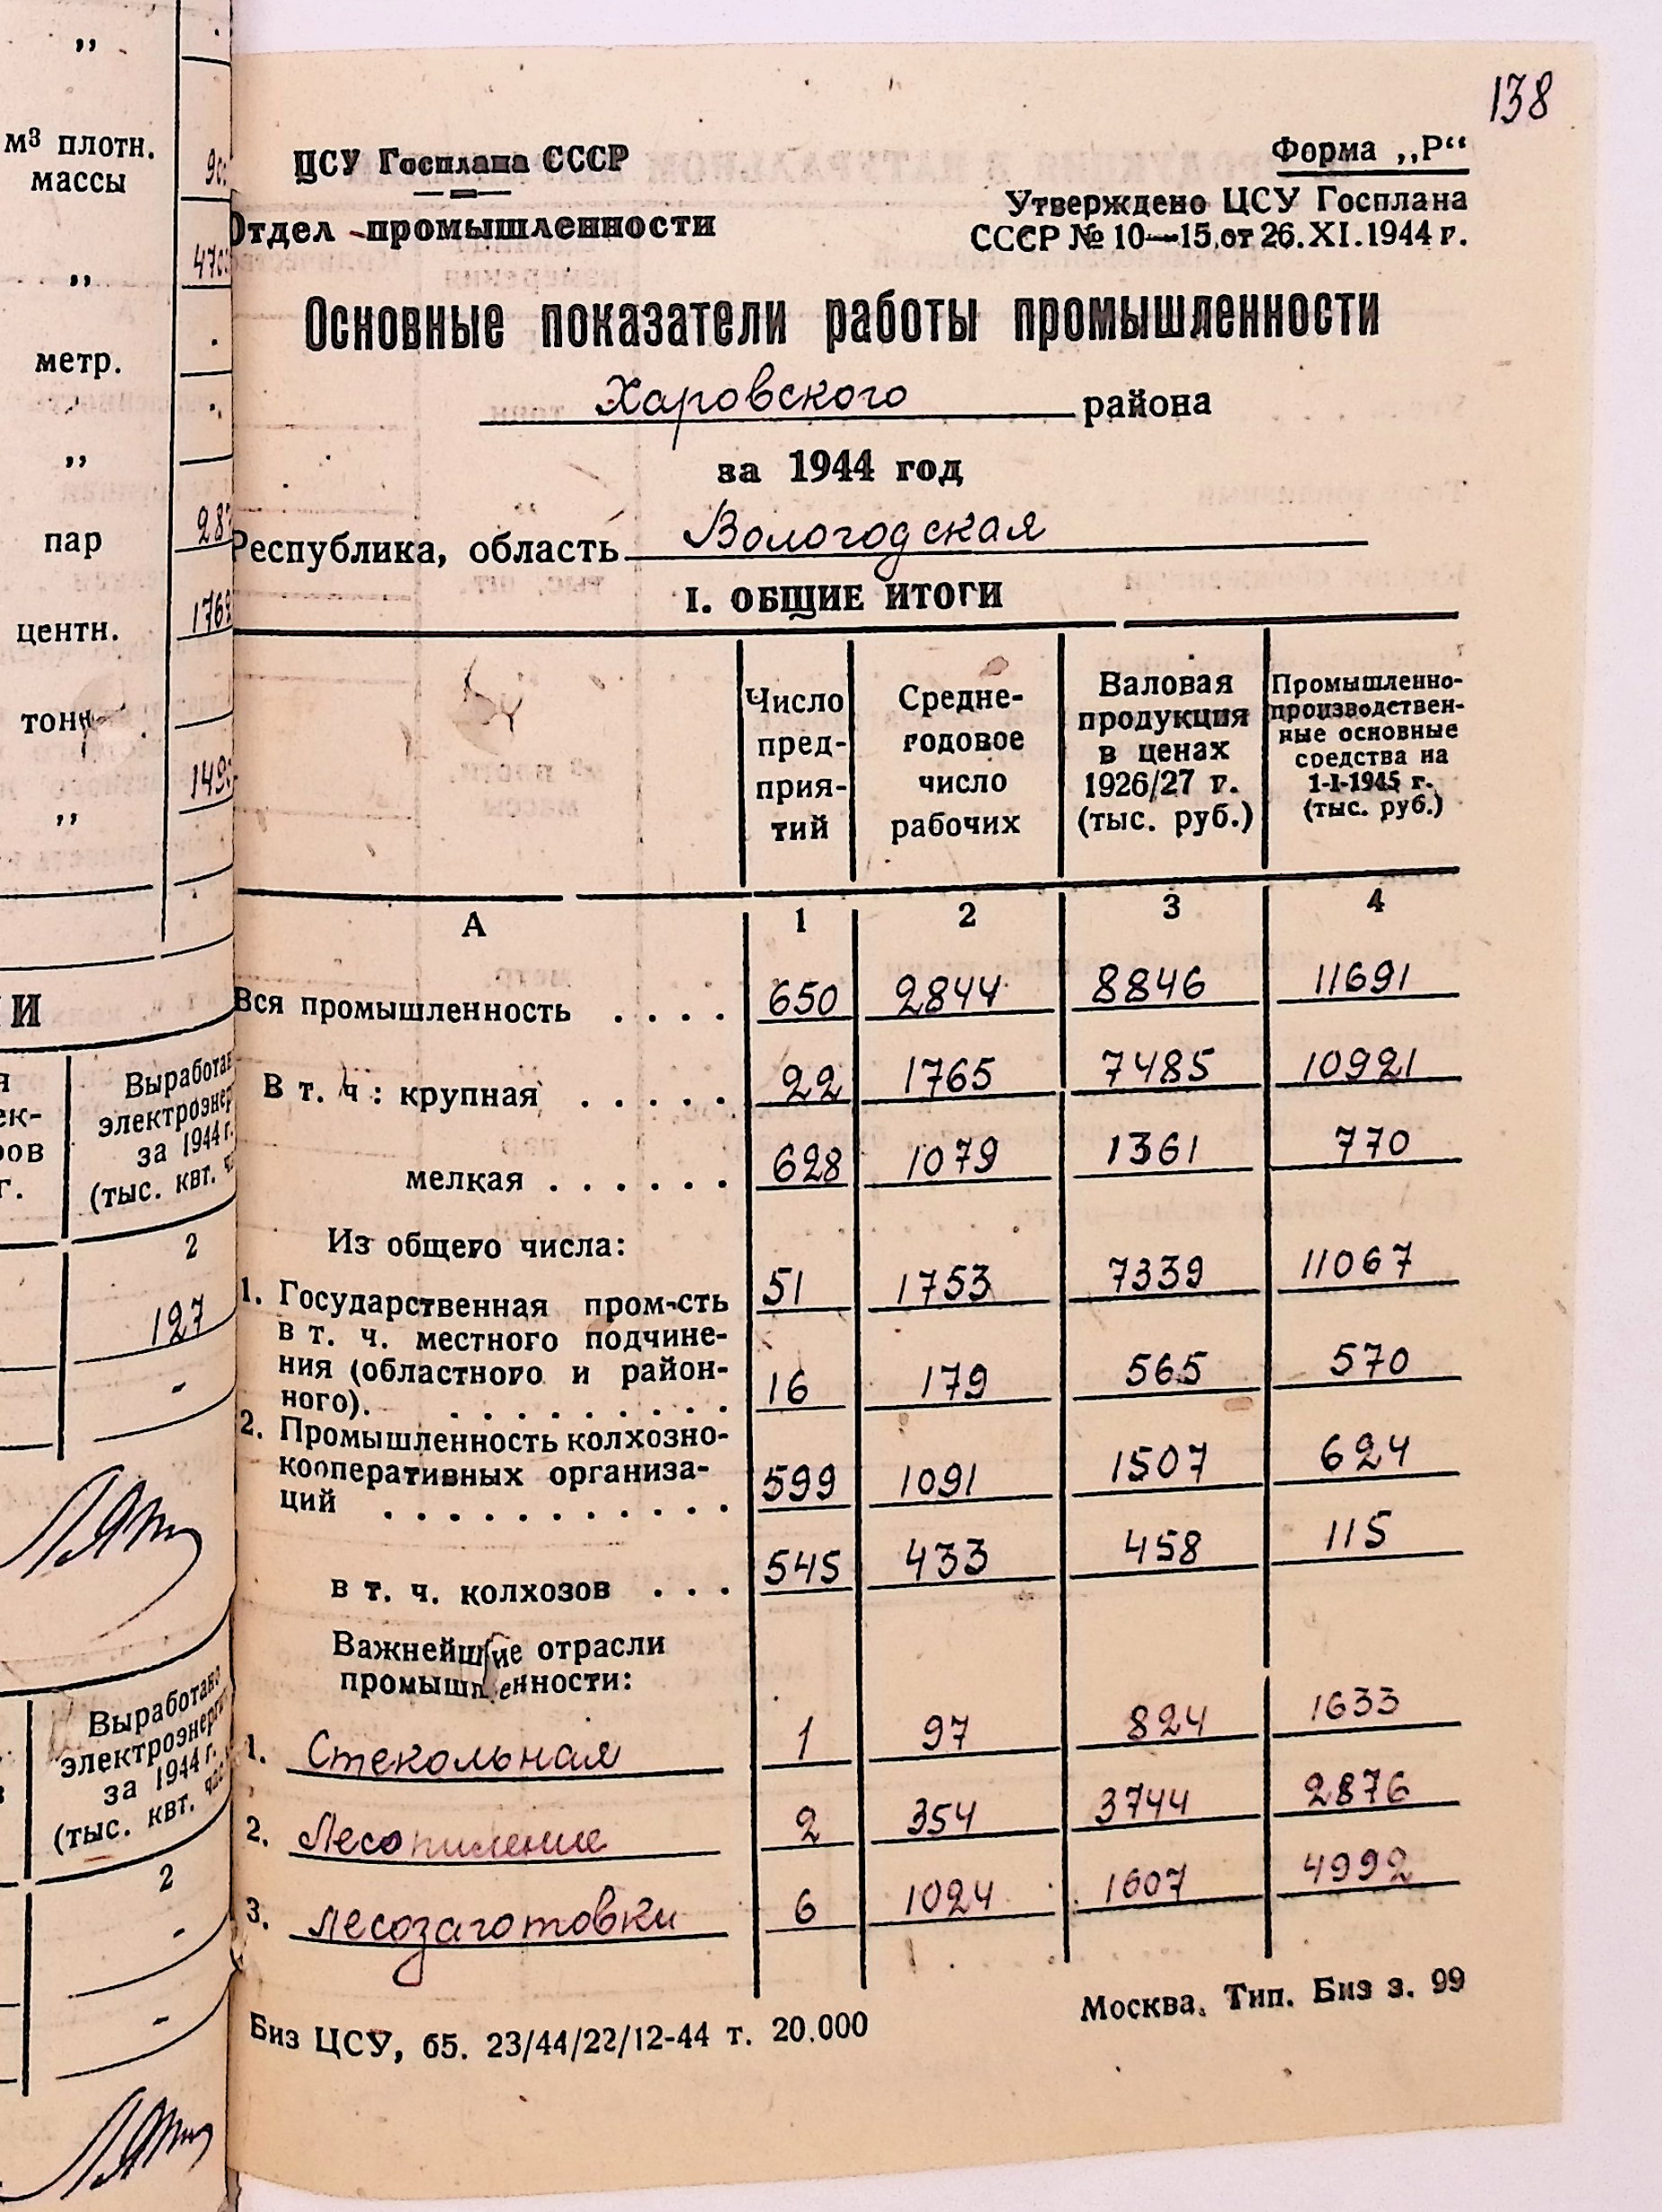 138
ЦСУ Госплана СССР
Форма „Р“
Отдел промышленности
Утверждено ЦСУ Госплана
СССР № 10—15 от 26.XI.1944 г.
Основные показатели работы промышленности
Харовского района
за 1944 год
Республика, область Вологодская
I. ОБЩИЕ ИТОГИ
Число пред-приятий
Средне-годовое число рабочих
Валовая продукция в ценах 1926/27 г. (тыс. руб.)
Промышленно-производствен-ные основные средства на 1-I-1945 г. (тыс. руб.)
А 1 2 3 4
Вся промышленность . . . . 650 2844 8846 11691
В т. ч : крупная . . . . . 22 1765 7485 10921
мелкая . . . . . . 628 1079 1361 770
Из общего числа:
1. Государственная пром-сть 51 1753 7339 11067
в т. ч. местного подчине-
ния (областного и район-
ного). . . . . . . . . . 16 179 565 570
2. Промышленность колхозно-
кооперативных организа-
ций . . . . . . . . . . . 599 1091 1507 624
в т. ч. колхозов . . . 545 433 458 115
Важнейшие отрасли
промышленности:
1. Стекольная 1 97 824 1633
2. Лесопиление 2 354 3744 2876
3. лесозаготовки 6 1024 1607 4992
Биз ЦСУ, б5. 23/44/22/12-44 т. 20.000
Москва. Тип. Биз з. 99
„
м3 плотн.
массы
„
метр.
„
пар
центн.
тонн
„
Выработано
электроэнергии
за 1944 г.
(тыс. квт.
2
127
-
Выработано
электроэнергии
за 1944 г.
(тыс. квт. час
2
-
-